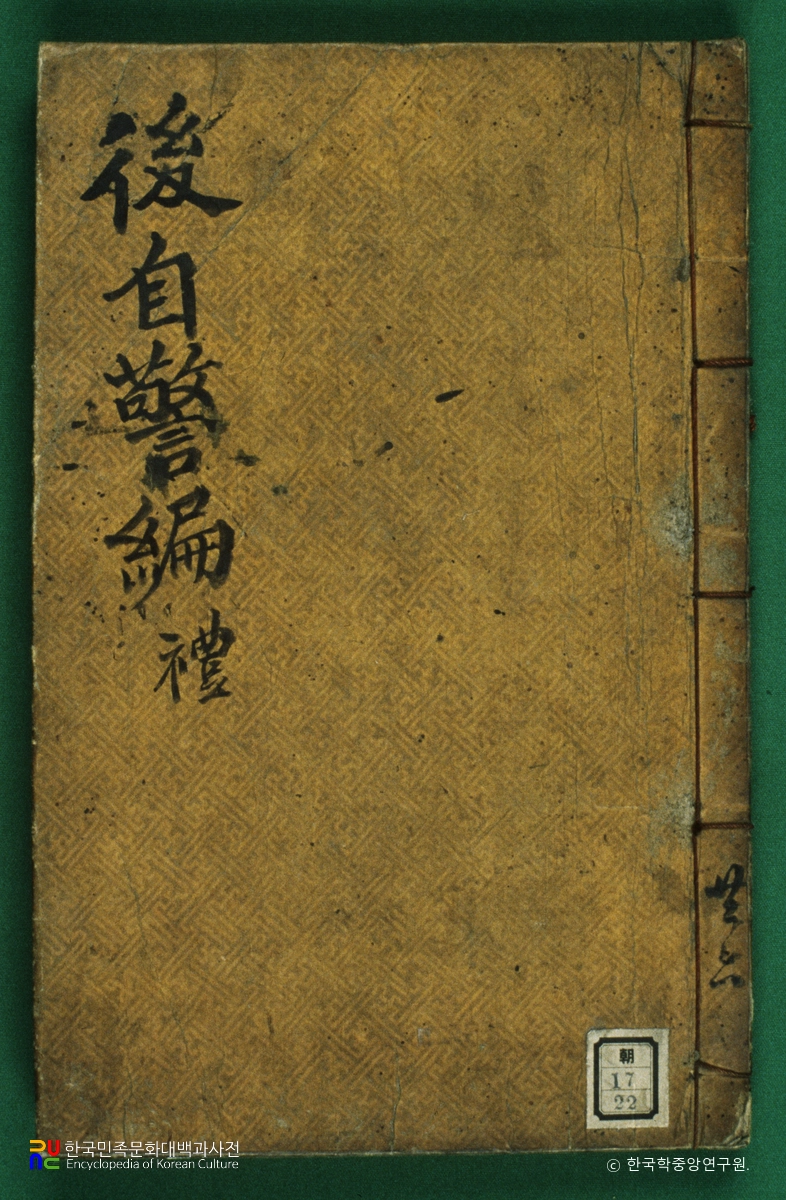 後自警編
禮
共六
朝
17
22
한국민족문화대백과사전
Encyclopedia of Korean Culture
ⓒ 한국학중앙연구원.